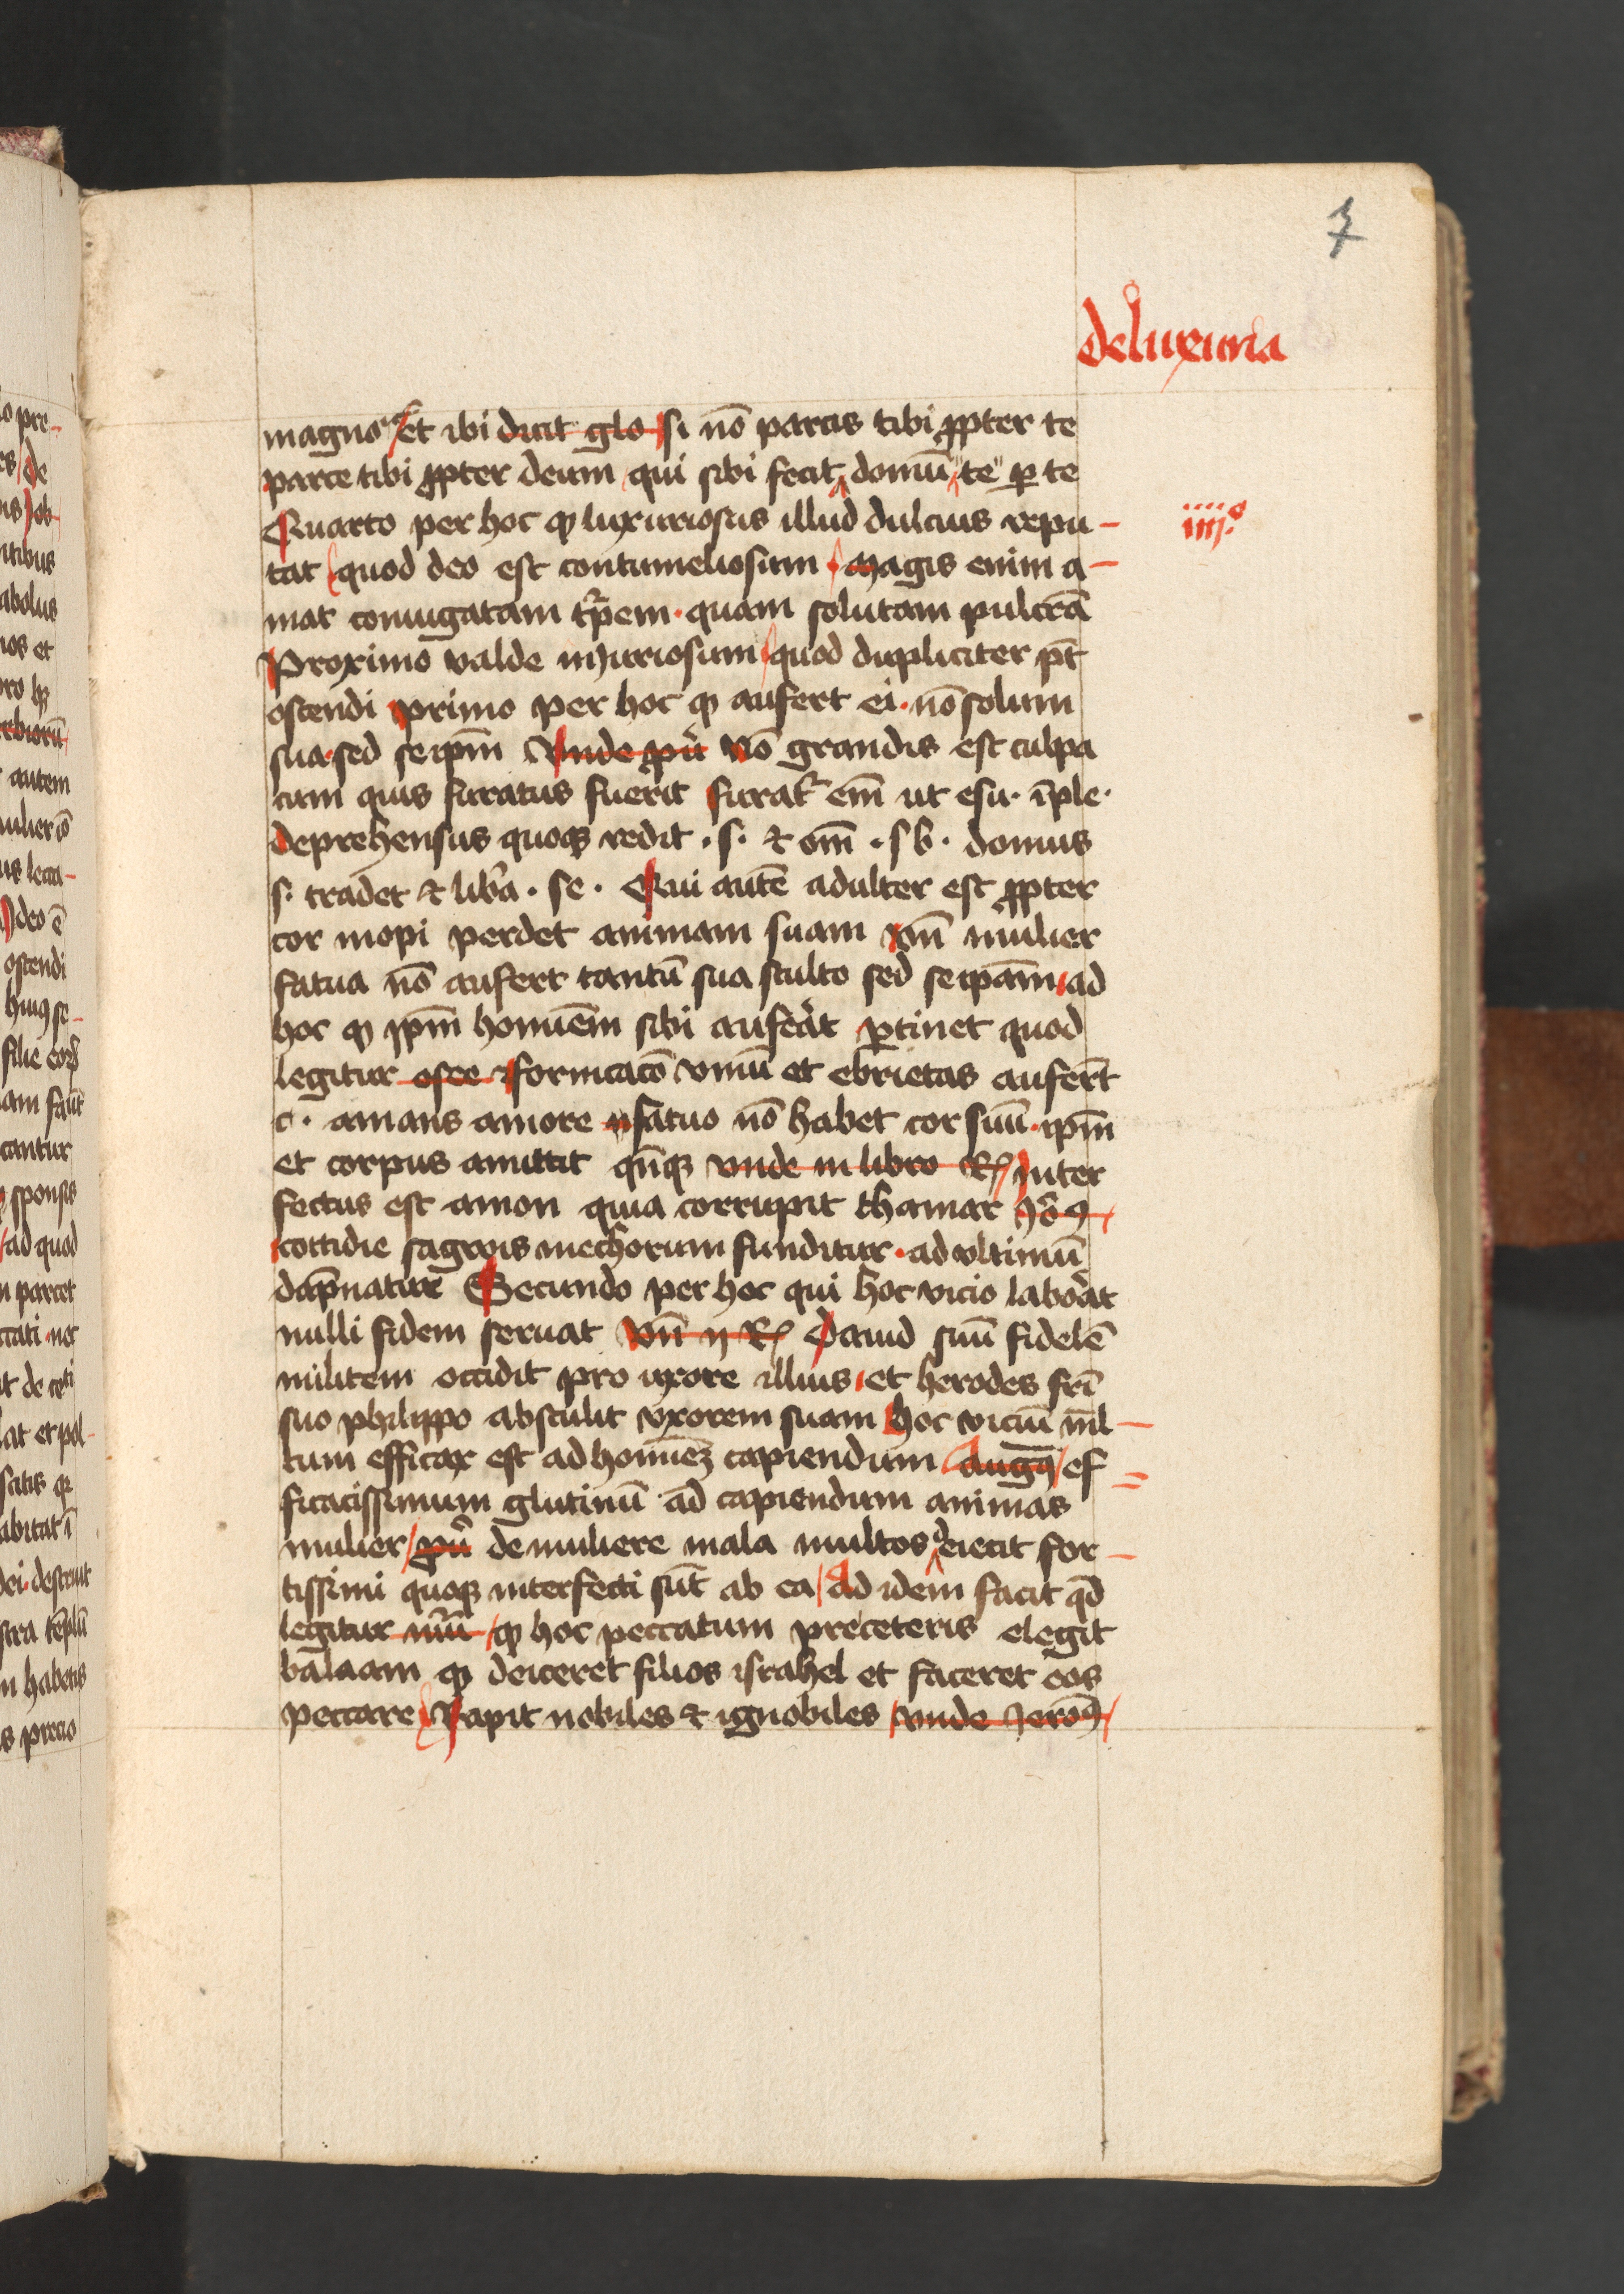 7
de luxuria
magno et ibi dicit glo si nō parcis tibi ꝓpter te
parce tibi ꝓpter deum qui sibi fecit domū te ꝑ te
Quarto per hoc ꝙ luxuriosus illud dulcius repu-
iiij°
tat quod deo est contumeliosum magis enim a-
mat coniugatam tpem quam solutam pulcrā
Proximo valde iniuriosum quod dupliciter pt̄
ostendi primo per hoc ꝙ aufert ei nō solum
sua sed seipm̄ Vnde pu Nō grandis est culpa
cum quis furatus fuerit furat em̄ ut esu. īple.
deprehensus quoqꝫ redit .s. ⁊ om̄ .sb. domus
s. tradet ⁊ libra . se . Qui autē adulter est ꝓpter
cor inopi perdet animam suam vn̄ mulier
fatua nō aufert tantū sua stulto sed seipam̄ ad
hoc ꝙ ipm̄ hominem sibi auferat ꝑtinet quod
legitur osee fornicacō vinū et ebrietas aufert
c. amans amore fatuo nō habet cor suū ipm̄
et corpus amittit qn̄qꝫ vnde in libro Rͬ inter
fectus est amon quia corrupit thamar
cottidie sagwis mechorum funditur ad vltimū
dāpnatur Secundo per hoc qui hoc vicio laborat
nulli fidem seruat vn̄ ij R Dauid suū fidelē
militem occidit pro uxore illius et herodes frī
suo philippo abstulit vxorem suam hoc viciū ml̄-
tum efficax est ad homīeꝫ capiendum augꝰ ef=
ficacissimum glutinū ad capiendum animas
mulier pu de muliere mala multos deiecit for-
tissimi quoqꝫ interfecti sūt ab ea ad idem facit qd̄
legitur nūu ꝙ hoc peccatum preceteris elegit
balaam ꝙ deiceret filios israhel et faceret eos
peccare Rapit nobiles ⁊ ignobiles vnde jeroꝰ